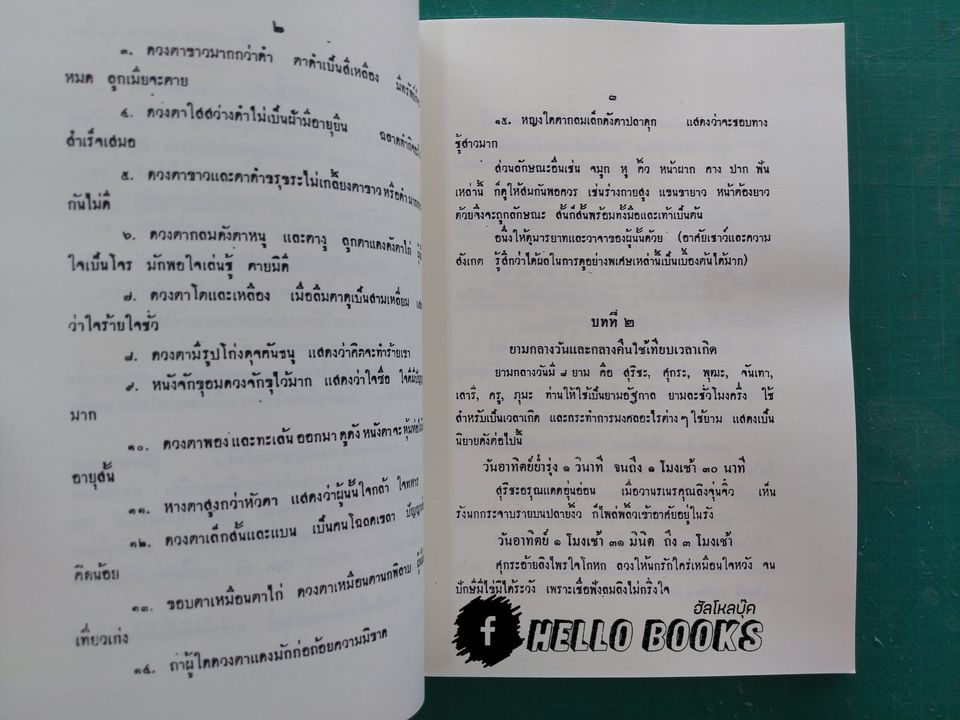 ๒
๓. ดวงตาขาวมากกว่าดำ ตาดำเป็นสีเหลือง
หมด ลูกเมียจะตาย
๔. ดวงตาใสสว่างดำไม่เป็นฝ้ามีอายุยืน
สำเร็จเสมอ
๕. ดวงตาขาวและตาดำขรุขระไม่เกลี้ยงตาขาว หรือดำ
กันไม่ดี
๖. ดวงตากลมดังตาหนู และตางู ลูกตาแดงดังตาไก่
ใจเป็นโจร มักพอใจเล่นชู้ ตายมิดี
๗. ดวงตาโตและเหลือง เมื่อลืมตาดูเป็นสามเหลี่ยม
ว่าใจร้ายใจชั่ว
๘. ดวงตามีรูปโก่งดุจคันธนู แสดงว่าคิดจะทำร้ายเขา
๙. หนังจักขุอมดวงจักขุไว้มาก แสดงว่าใจซื่อ
มาก
๑๐. ดวงตาพองและทะเล้นออกมา ดูดังหนังตาจะหุ้ม
อายุสั้น
๑๑. หางตาสูงกว่าหัวตา แสดงว่าผู้นั้นใจกล้า ใจทหาร
๑๒. ดวงตาเล็กสั้นและแบน เป็นคนโฉดเขลา
คิดน้อย
๑๓. ขอบตาเหมือนตาไก่ ดวงตาเหมือนตานกพิลาบ
เที่ยวเก่ง
๑๔. ถ้าผู้ใดดวงตาแดงมักก่อถ้อยความมิขาด
๓
๑๕. หญิงใดตากลมเล็กดังตาปลาดุก แสดงว่าจะชอบทาง
ชู้สาวมาก
ส่วนลักษณะอื่นเช่น จมูก หู คิ้ว หน้าผาก คาง ปาก ฟัน
เหล่านี้ ก็ดูให้สมกันพอควร เช่นร่างกายสูง แขนขายาว หน้าต้องยาว
ด้วยจึงจะถูกลักษณะ สั้นก็สั้นพร้อมทั้งมือและเท้าเป็นต้น
อนึ่งให้ดูมารยาทและวาจาของผู้นั้นด้วย (อาศัยเชาว์และความ
สังเกต รู้สึกว่าได้ผลในการดูอย่างพิเศษเหล่านี้เป็นเบื้องต้นได้มาก)
บทที่ ๒
ยามกลางวันและกลางคืนใช้เทียบเวลาเกิด
ยามกลางวันมี ๘ ยาม คือ สุริชะ, ศุกระ, พุฒะ, จันเทา,
เสารี, ครู, ภุมะ ท่านให้ใช้เป็นยามอัฐกาล ยามละชั่วโมงครึ่ง ใช้
สำหรับเป็นเวลาเกิด และกระทำการมงคลอะไรต่างๆ ใช้ยาม แสดงเป็น
นิยายดังต่อไปนี้
วันอาทิตย์ย่ำรุ่ง ๑ วินาที จนถึง ๑ โมงเช้า ๓๐ นาที
สุริชะอรุณแดดอุ่นอ่อน เมื่อวานรเนรคุณถึงจุ่นจิ๋ว เห็น
รังนกกระจาบรายบนปลายงิ้ว ก็ไพล่พลิ้วเข้าอาศัยอยู่ในรัง
วันอาทิตย์ ๑ โมงเช้า ๓๑ มินิต ถึง ๓ โมงเช้า
ศุกระอ้ายลิงไพรใจโกหก ลวงให้นกรักใคร่เหมือนใจหวัง จน
ปักษีมีไข่มิได้ระวัง เพราะเชื่อฟังลมลิงไม่กริ่งใจ
ฮัลโหลบุ๊ค
f HELLO BOOKS